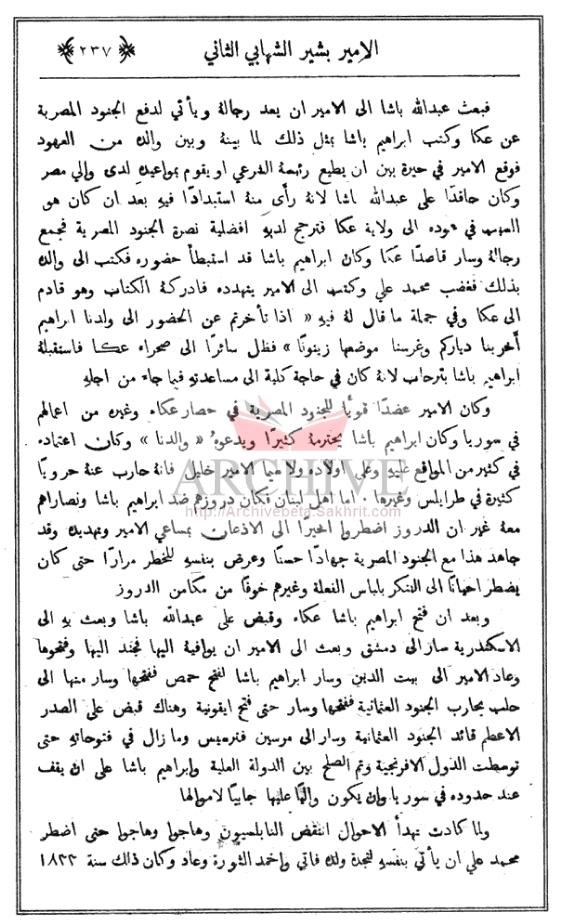 الامير بشير الشهابي الثاني ﴿ ٢٣٧ ﴾
فبعث عبدالله باشا الى الامير ان يعد رجالهُ ويأتي لدفع الجنود المصرية
عن عكا وكتب ابراهيم باشا بمثل ذلك لما بينهُ وبين والدهِ من العهود
فوقع الامير في حيرة بين ان يطيع رئيسهُ الشرعي او يقوم بمواعيدهِ لدى والي مصر
وكان حاقدًا على عبدالله باشا لانهُ رأى منهُ استبدادًا فيهِ بعد ان كان هو
السبب في عوده الى ولاية عكا فترجح لديهِ افضلية نصرة الجنود المصرية فجمع
رجالهُ وسار قاصدًا عكا وكان ابراهيم باشا قد استبطأ حضوره فكتب الى والدهِ
بذلك فغضب محمد علي وكتب الى الامير يتهدده فادركهُ الكتاب وهو قادم
الى عكا وفي جملة ما قال لهُ فيهِ « اذا تأخرتم عن الحضور الى ولدنا ابراهيم
أخربنا دياركم وغرسنا موضعها زيتونًا » فظل سائرًا الى صحراء عكا فاستقبلهُ
ابراهيم باشا بترحاب لانهُ كان في حاجة كلية الى مساعدتهِ فيما جاء من اجلهِ
وكان الامير عضدًا قويًا للجنود المصرية في حصار عكاء وغيره من اعمالهم
في سوريا وكان ابراهيم باشا يحترمهُ كثيرًا ويدعوهُ « والدنا » وكان اعتماده
في كثير من المواقع عليهِ وعلى اولاده ولا سيما الامير خليل فانهُ حارب عنهُ حروبًا
كثيرة في طرابلس وغيرها . اما اهل لبنان فكان دروزهم ضد ابراهيم باشا ونصاراهم
معهُ غير ان الدروز اضطروا اخيرًا الى الاذعان بمساعي الامير وتهديدهِ وقد
جاهد هذا مع الجنود المصرية جهادًا حسنًا وعرض بنفسهِ للخطر مرارًا حتى كان
يضطر احيانًا الى التنكر بلباس الفعلة وغيرهم خوفًا من مكامن الدروز
وبعد ان فتح ابراهيم باشا عكاء وقبض على عبدالله باشا وبعث بهِ الى
الاسكندرية سار الى دمشق وبعث الى الامير ان يوافيهُ اليها فجند اليها وفتحوها
وعاد الامير الى بيت الدين وسار ابراهيم باشا لفتح حمص ففتحها وسار منها الى
حلب يحارب الجنود العثمانية ففتحها وسار حتى فتح ايقونية وهناك قبض على الصدر
الاعظم قائد الجنود العثمانية وسار الى مرسين فترسيس وما زال في فتوحاتهِ حتى
توسطت الدول الافرنجية وتم الصلح بين الدولة العلية وابراهيم باشا على ان يقف
عند حدوده في سوريا وان يكون واليًا عليها جابيًا لاموالها
ولما كادت تهدأ الاحوال انتقض النابلسيون وهاجوا وهاجوا حتى اضطر
محمد علي ان يأتي بنفسهِ لنجدة ولده فاتى واخمد الثورة وعاد وكان ذالك سنة ١٨٣٣
ARCHIVE
http://Archivebeta.Sakhrit.com